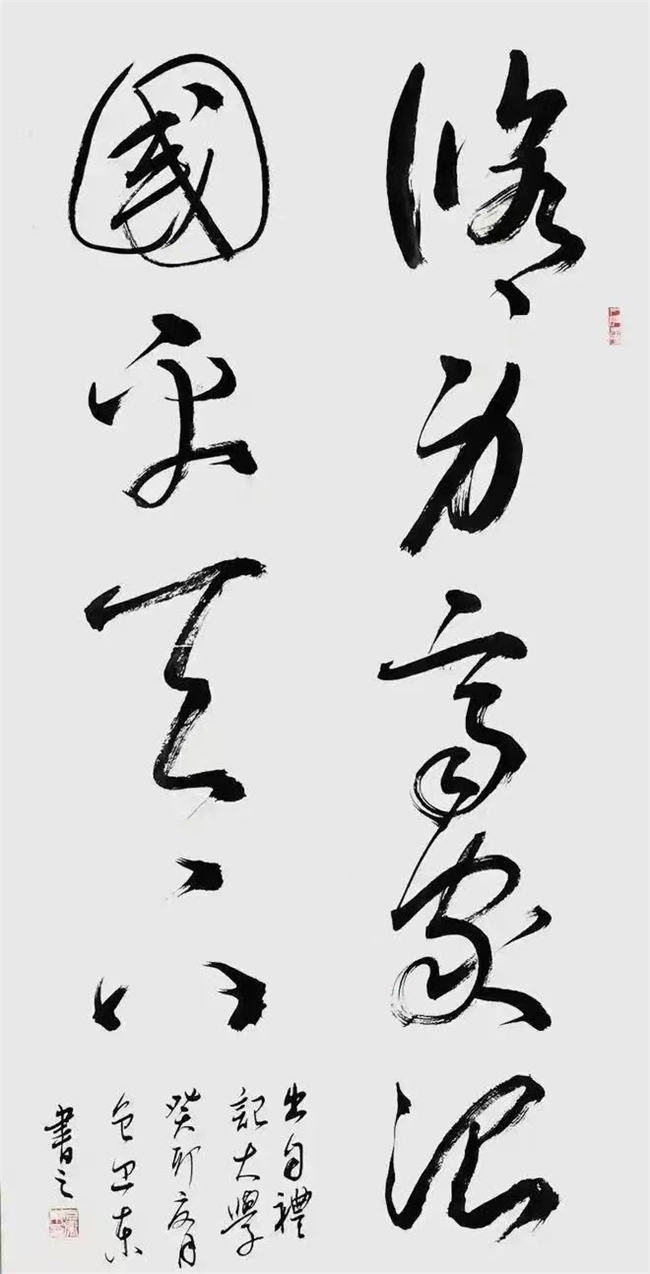 修身齊家治
國平天下
出自禮
記大學
癸卯夏月
東
書之